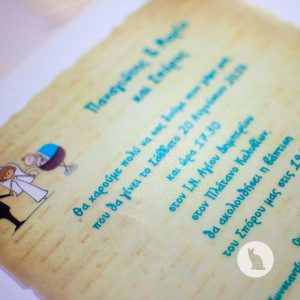 Παναγιώτης & Μαρία
και Σπύρος
Θα χαρούμε πολύ να σας δούμε στο γάμο μας
που θα γίνει το Σάββατο 20 Αυγούστου
και ώρα 17.30
στον Ι.Ν Αγίου Δημητρίου
στον Πλάτανο Καλυβίων.
θα ακολουθήσει η βάπτιση
του Σπύρου μας στις